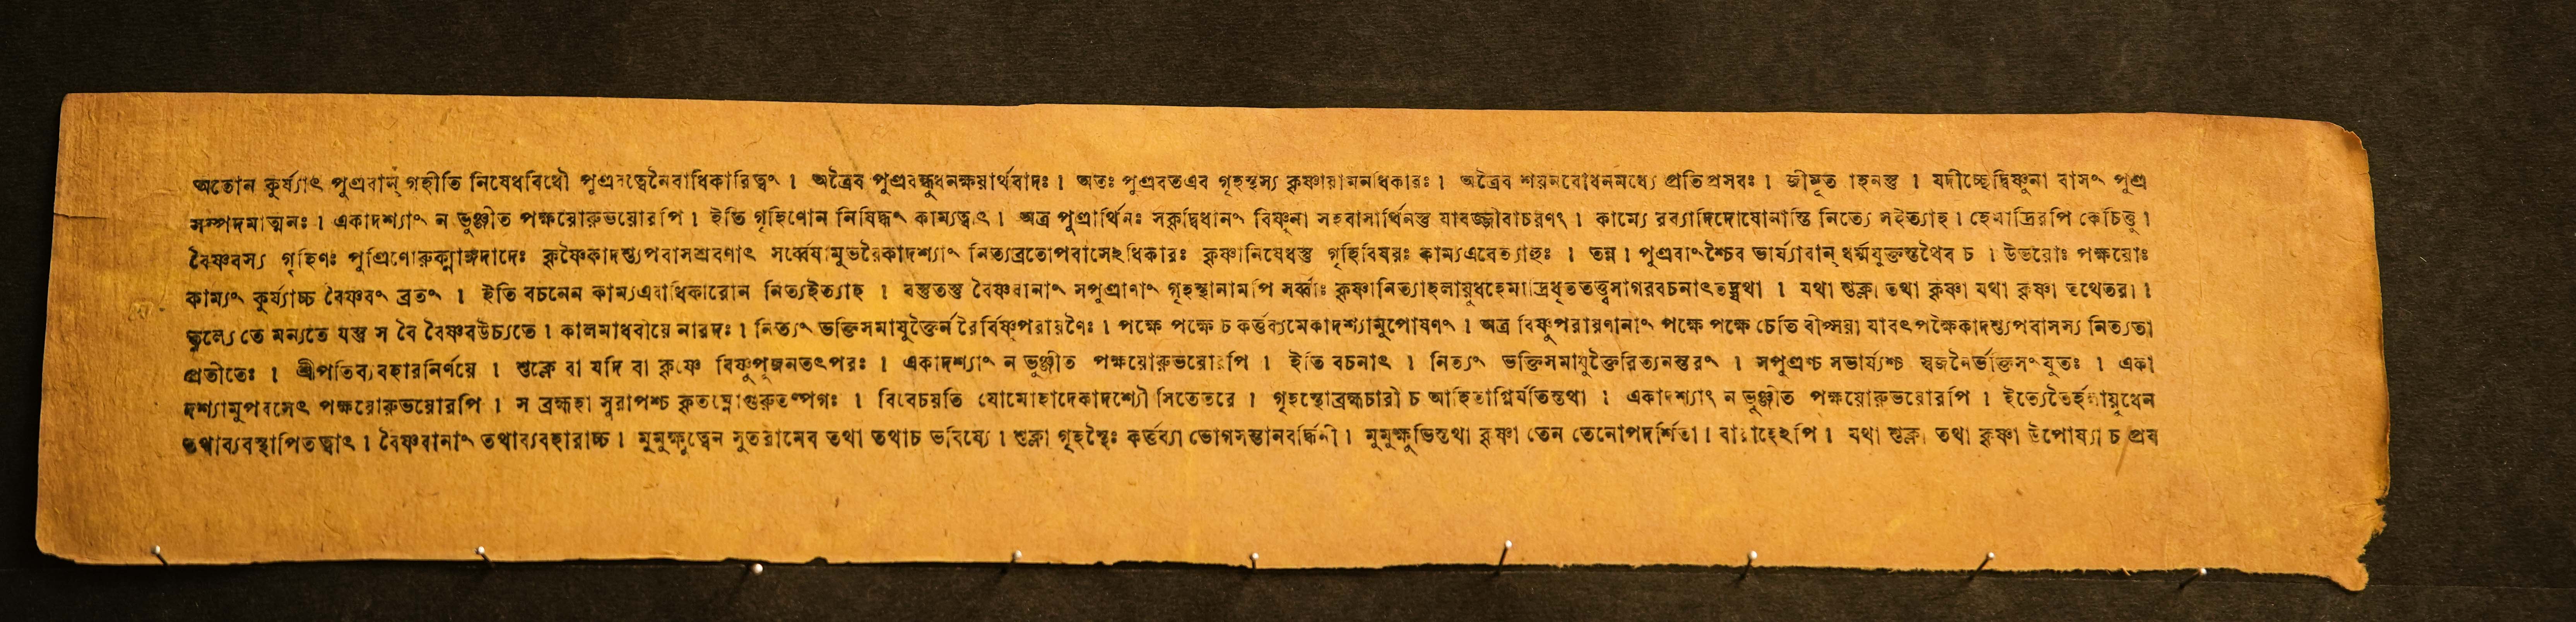 অতোন কুর্য্যাৎ পুত্রবান্ গৃহীতি নিষেধবিধৌ পুত্রবত্ত্বেনৈবাধিকারিত্বং । অত্রৈব পুত্রবন্ধুধনক্ষয়ার্থবাদঃ । অতঃ পুত্রবতএব গৃহস্থস্য কৃষ্ণায়ামনধিকারঃ । অত্রৈব শয়নবোধনমধ্যে প্রতিপ্রসবঃ । জীমূত াহনস্তু । যদীচ্ছেদ্বিষ্ণুনা বাসং পুত্র
সম্পদমাত্মনঃ । একাদশ্যাং ন ভুঞ্জীত পক্ষয়োরুভয়োরপি । ইতি গৃহিণোন নিষিদ্ধং কাম্যত্বাৎ । অত্র পুত্রার্থিনঃ সকৃদ্বিধানং বিষ্ণুনা সহবাসার্থিনস্তু যাবজ্জীবাচরণং । কাম্যে রব্যাদিদোষোনাস্তি নিত্যে সইত্যাহ । হেমাদ্রিরপি কেচিত্তু ।
বৈষ্ণবস্য গৃহিণঃ পুত্রিণোরুক্মাঙ্গদাদেঃ কৃষ্ণৈকাদশ্যুপবাসশ্রবণাৎ সর্ব্বেষামুভয়ৈকাদশ্যাং নিত্যব্রতোপবাসেঽধিকারঃ কৃষ্ণানিষেধস্তু গৃহিবিষয়ঃ কাম্যএবেত্যাহুঃ । তন্ন । পুত্রবাংশ্চৈব ভার্য্যাবান্ ধর্ম্মযুক্তস্তথৈব চ । উভয়োঃ পক্ষয়োঃ
কাম্যং কুর্য্যাচ্চ বৈষ্ণবং ব্রতং । ইতি বচনেন কাম্যএবাধিকারোন নিত্যইত্যাহ । বস্তুতস্তু বৈষ্ণবানাং সপুত্রাণাং গৃহস্থানামপি সর্ব্বাঃ কৃষ্ণানিত্যাহলায়ুধহেমাদ্রিধৃততত্ত্বসাগরবচনাৎতদ্যথা । যথা শুক্লা তথা কৃষ্ণা যথা কৃষ্ণা তথেতরা ।
তুল্যে তে মন্যতে যস্তু স বৈ বৈষ্ণবউচ্যতে । কালমাধবীয়ে নারদঃ । নিত্যং ভক্তিসমাযুক্তৈর্ন রৈর্বিষ্ণুপরায়ণৈঃ । পক্ষে পক্ষে চ কর্ত্তব্যমেকাদশ্যামুপোষণং । অত্র বিষ্ণুপরায়ণানাং পক্ষে পক্ষে চেতি বীপ্সয়া যাবৎপক্ষৈকাদশ্যুপবাসস্য নিত্যতা
প্রতীতেঃ । শ্রীপতিব্যবহারনির্ণয়ে । শুক্লে বা যদি বা কৃষ্ণে বিষ্ণুপূজনতৎপরঃ । একাদশ্যাং ন ভুঞ্জীত পক্ষয়োরুভয়োরপি । ইতি বচনাৎ । নিত্যং ভক্তিসমাযুক্তৈরিত্যনন্তরং । সপুত্রশ্চ সভার্য্যশ্চ স্বজনৈর্ভক্তিসংযুতঃ । একা
দশ্যামুপবসেৎ পক্ষয়োরুভয়োরপি । স ব্রহ্মহা সুরাপশ্চ কৃতঘ্নোগুরুতল্পগঃ । বিবেচয়তি যোমোহাদেকাদশ্যৌ সিতেতরে । গৃহস্থোব্রহ্মচারী চ আহিতাগ্নির্যতিস্তথা । একাদশ্যাং ন ভুঞ্জীত পক্ষয়োরুভয়োরপি । ইত্যেতৈর্হলায়ুধেন
তথাব্যবস্থাপিতত্ত্বাৎ । বৈষ্ণবানাং তথাব্যবহারাচ্চ । মুমুক্ষুত্বেন সুতরামেব তথা তথাচ ভবিষ্যে । শুক্লা গৃহস্থৈঃ কর্ত্তব্যা ভোগসন্তানবর্দ্ধিনী । মুমুক্ষুভিস্তথা কৃষ্ণা তেন তেনোপদর্শিতা । বারাহেঽপি । যথা শুক্লা তথা কৃষ্ণা উপোষ্যা চ প্রয